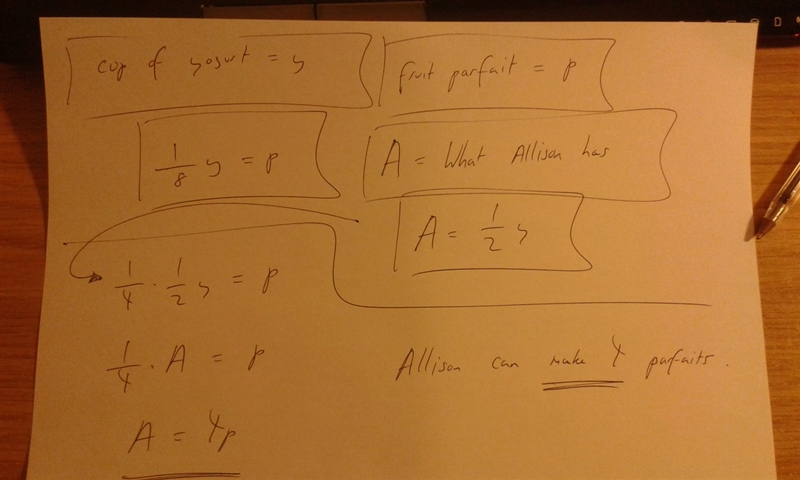 cup of yogurt = y
fruit parfait = p
1/8 y = p
A = What Allison has
A = 1/2 y
1/4 · 1/2 y = p
1/4 · A = p
Allison can make 4 parfaits.
A = 4p